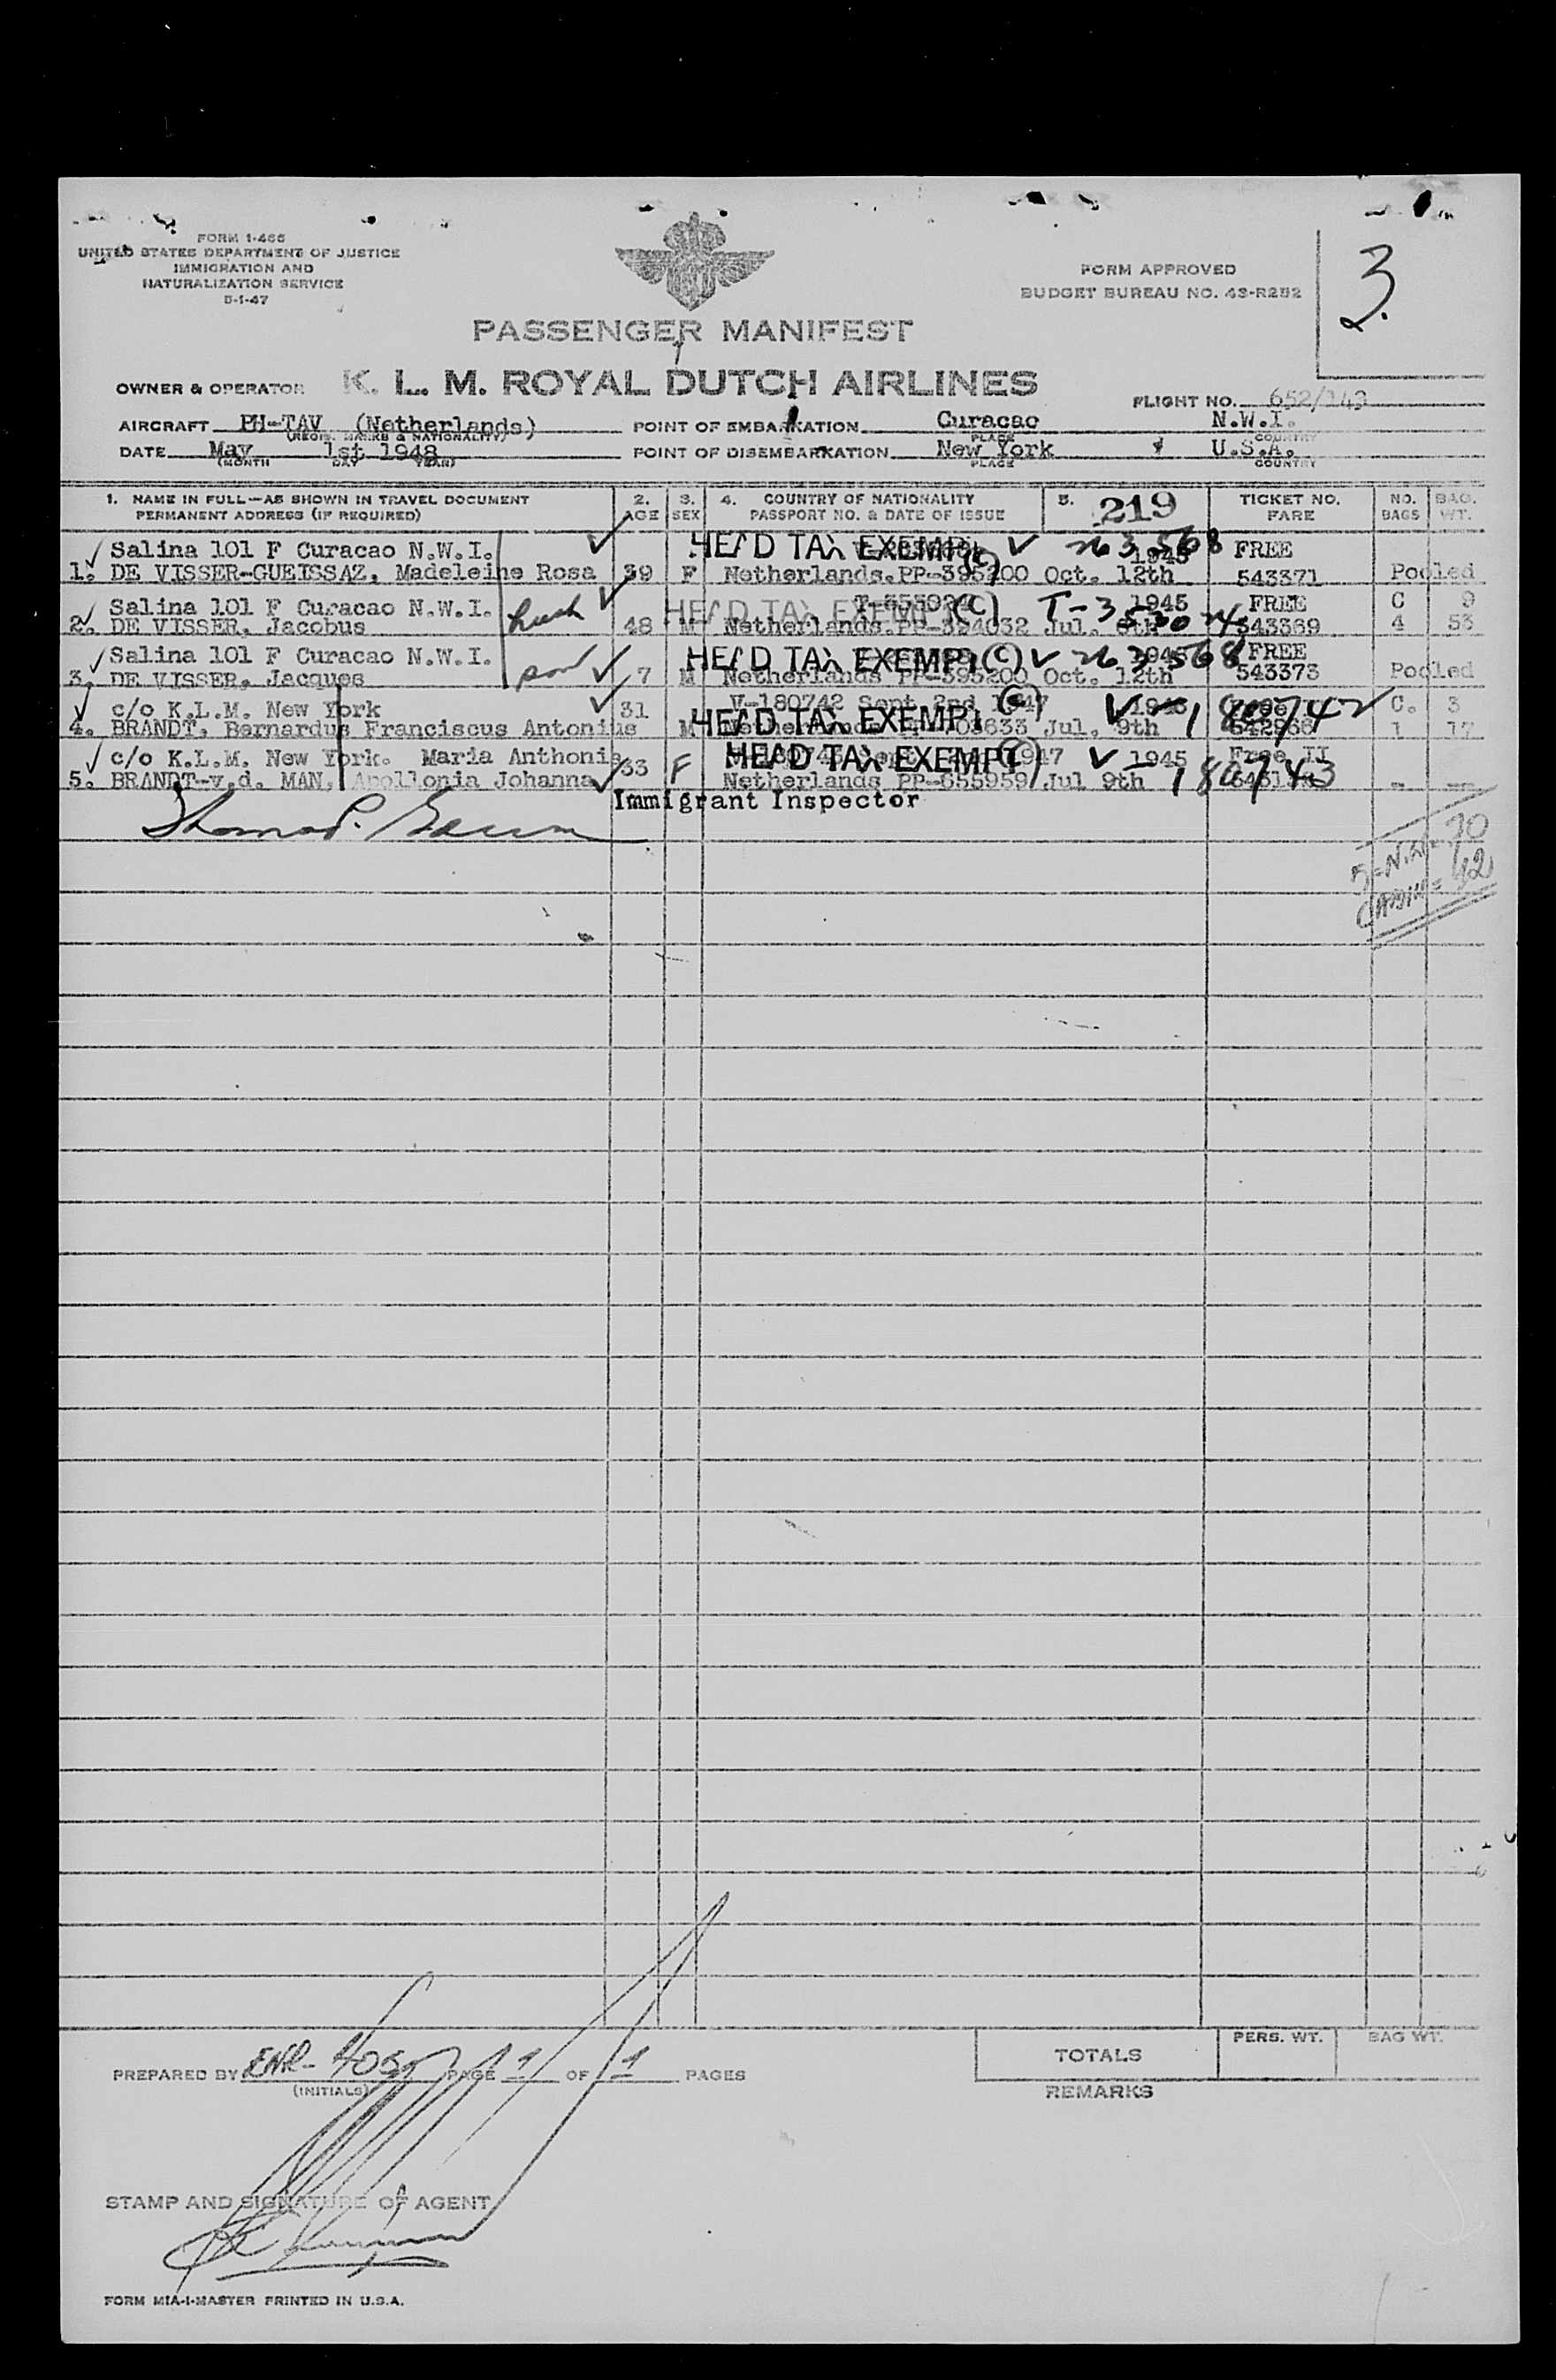 FORM I-466
UNITED STATES DEPARTMENT OF JUSTICE
IMMIGRATION AND
NATURALIZATION SERVICE
5-1-47
FORM APPROVED
BUDGET BUREAU NO. 43-R282
3.
PASSENGER MANIFEST
OWNER & OPERATOR K. L. M. ROYAL DUTCH AIRLINES
FLIGHT NO. 652/143
AIRCRAFT PH-TAV (Netherlands) POINT OF EMBARKATION Curacao N.W.I.
(REGIS. MARKS & NATIONALITY) PLACE COUNTRY
DATE May 1st 1948 POINT OF DISEMBARKATION New York U.S.A.
(MONTH DAY YEAR) PLACE COUNTRY
1. NAME IN FULL—AS SHOWN IN TRAVEL DOCUMENT 2. 3. 4. COUNTRY OF NATIONALITY 5. 219 TICKET NO. NO. BAG.
PERMANENT ADDRESS (IF REQUIRED) AGE SEX PASSPORT NO. & DATE OF ISSUE FARE BAGS WT.
Salina 101 F Curacao N.W.I. HEAD TAX EXEMPT (C) V 263568 1945 FREE
1. DE VISSER-GUEISSAZ, Madeleine Rosa 39 F Netherlands.PP-395200 Oct. 12th 543371 Pooled
Salina 101 F Curacao N.W.I. HEAD TAX EXEMPT (C) T-353024 1945 FREE C 9
2. DE VISSER, Jacobus 48 M Netherlands.PP-394032 Jul. 6th 543369 4 53
Salina 101 F Curacao N.W.I. HEAD TAX EXEMPT (C) V 263568 1945 FREE
3. DE VISSER, Jacques son 7 M Netherlands PP-395200 Oct. 12th 543373 Pooled
c/o K.L.M. New York 31 V-180742 Sept 2nd 1947 HEAD TAX EXEMPT (C) V-180742 C. 3
4. BRANDT, Bernardus Franciscus Antonius M Jul. 9th 1 17
c/o K.L.M. New York. Maria Anthonia 33 F HEAD TAX EXEMPT (C) 1947 V-180743 1945 Free II
5. BRANDT-v.d. MAN, Apollonia Johanna Netherlands PP-655959 Jul 9th - --
Immigrant Inspector
PREPARED BY PAGE 1 OF 1 PAGES
(INITIALS)
TOTALS PERS. WT. BAG WT.
REMARKS
STAMP AND SIGNATURE OF AGENT
FORM MIA-1-MASTER PRINTED IN U.S.A.